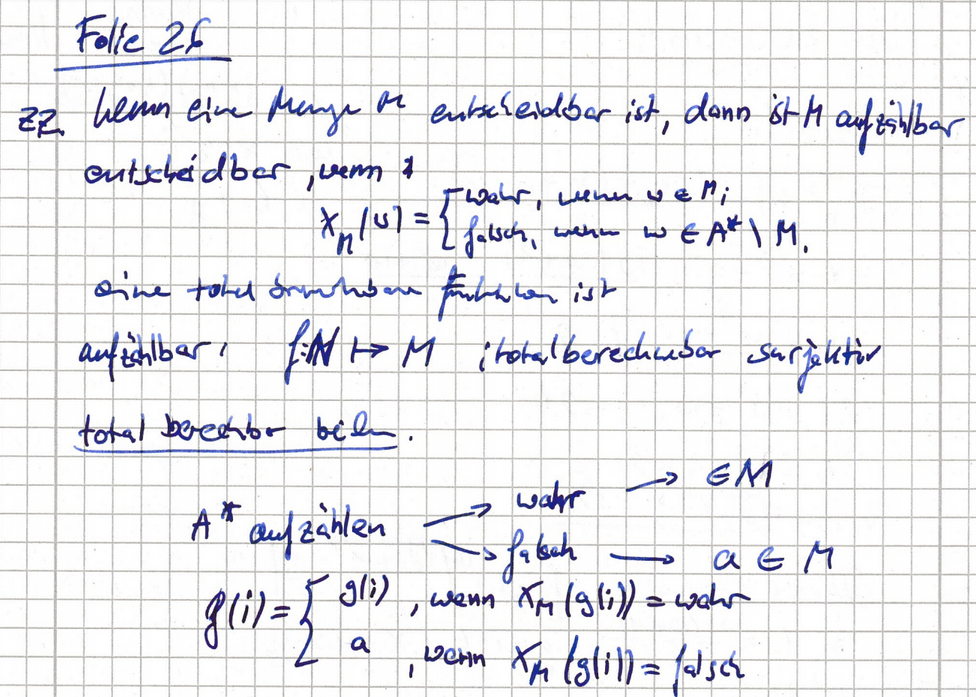 Folie 26
zz. Wenn eine Menge M entscheidbar ist, dann ist M aufzählbar
entscheidbar, wenn
χ_M(w) = { wahr, wenn w ∈ M;
falsch, wenn w ∈ A* \ M.
eine total berechenbare Funktion ist
aufzählbar: f: ℕ ↦ M ; total berechenbar surjektiv
total berechbar
A* aufzählen → wahr → ∈ M
→ falsch → a ∈ M
f(i) = { g(i), wenn χ_M(g(i)) = wahr
a, wenn χ_M(g(i)) = falsch